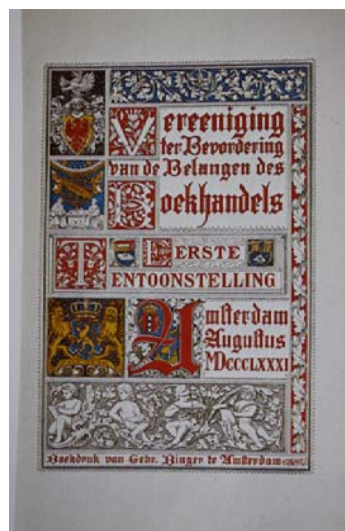 Vereeniging
ter Bevordering
van de Belangen des
Boekhandels
EERSTE
TENTOONSTELLING
Amsterdam
Augustus
MDCCCLXXXI
Boekdruk van Gebr. Binger te Amsterdam